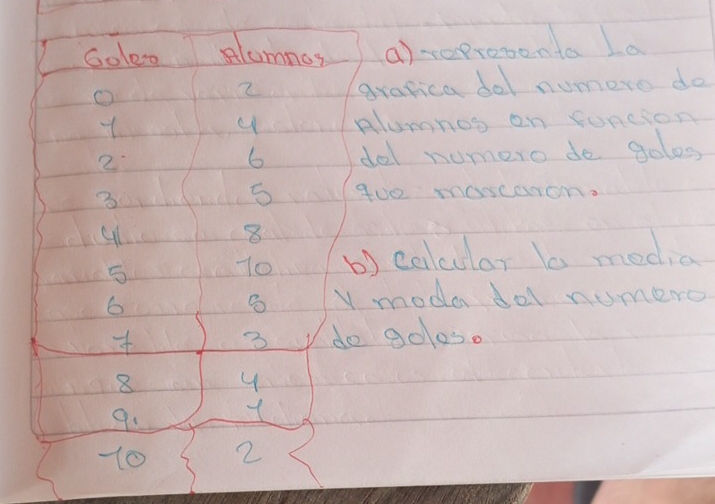 Goles Alumnos
0 2
1 4
2 6
3 5
4 8
5 10
6 8
7 3
8 4
9. 1
10 2
a) representa La
grafica del numero de
Alumnos en funcion
del numero de goles
que marcaron.
b) calcular la media
y moda del numero
de goles.